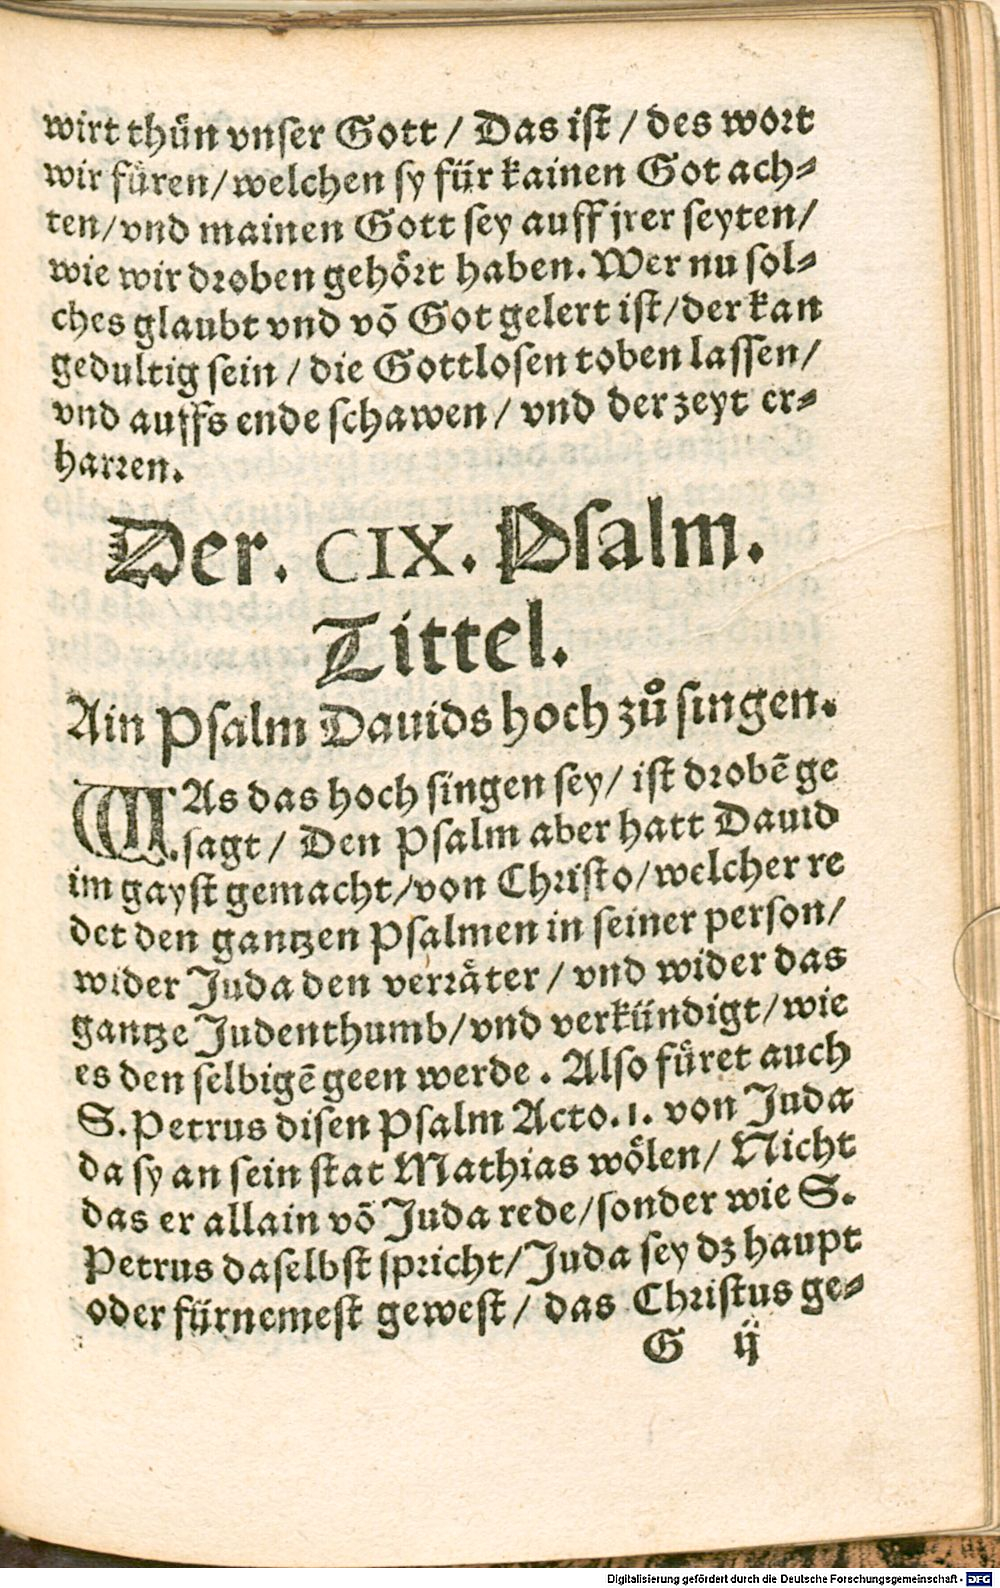 wirt thůn vnser Gott / Das ist / des wort
wir fůren / welchen sy für kainen Got ach⸗
ten / vnd mainen Gott sey auff jrer seyten /
wie wir droben gehört haben. Wer nu sol⸗
ches glaubt vnd võ Got gelert ist / der kan
gedultig sein / die Gottlosen toben lassen /
vnd auffs ende schawen / vnd der zeyt er⸗
harren.
Der. CIX. Psalm.
Tittel.
Ain Psalm Dauids hoch zů singen.
WAs das hoch singen sey / ist drobẽ ge
sagt / Den Psalm aber hatt Dauid
im gayst gemacht / von Christo / welcher re
det den gantzen Psalmen in seiner person /
wider Juda den verräter / vnd wider das
gantze Judenthumb / vnd verkündigt / wie
es den selbigẽ geen werde. Also fůret auch
S. Petrus disen Psalm Acto. 1. von Juda
da sy an sein stat Mathias wölen / Nicht
das er allain võ Juda rede / sonder wie S.
Petrus daselbst spricht / Juda sey dz haupt
oder fürnemest gewest / das Christus ge⸗
G ij
Digitalisierung gefördert durch die Deutsche Forschungsgemeinschaft - DFG